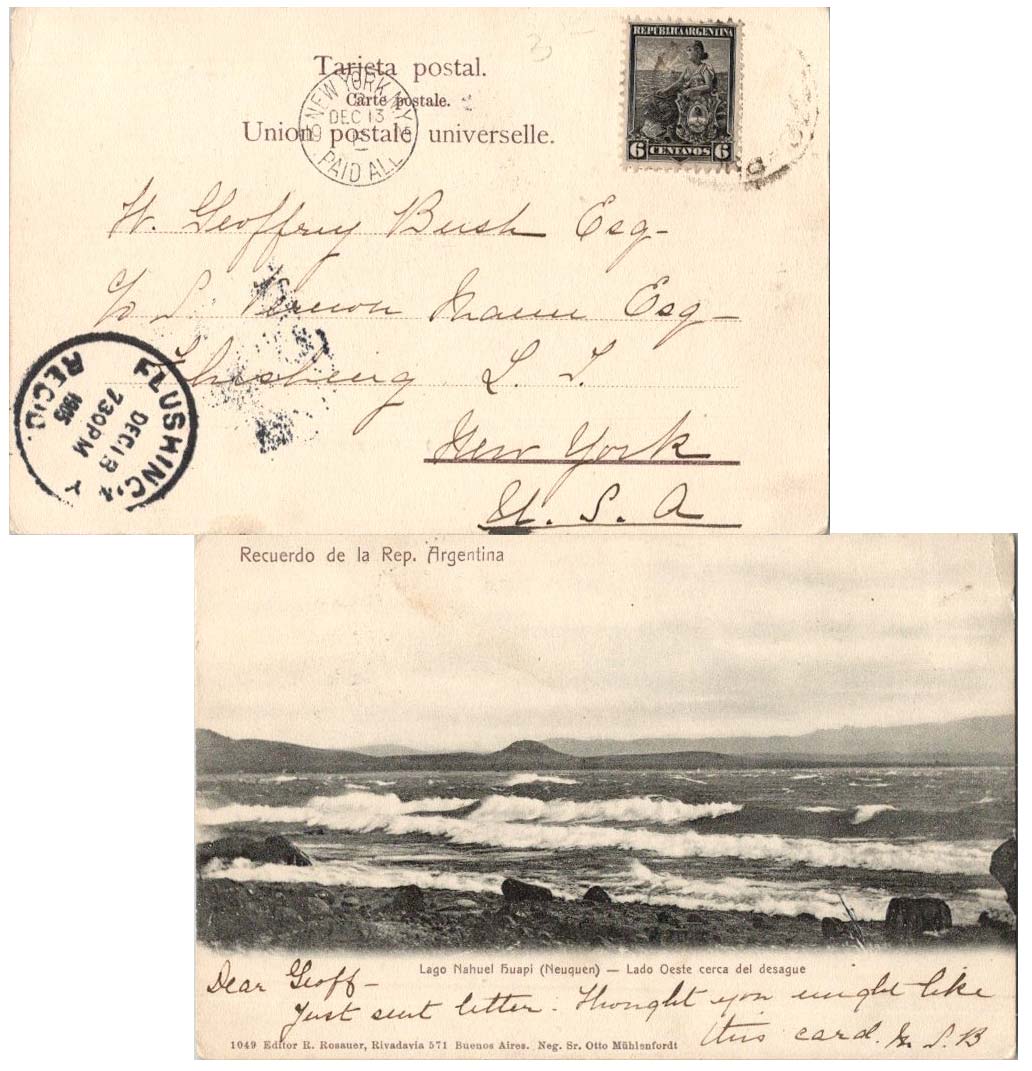 Tarjeta postal.
Carte postale.
Union postale universelle.
NEW YORK, N.Y.
DEC 13
PAID ALL
REPUBLICA ARGENTINA
6 CENTAVOS 6
W. Geoffrey Bush Esq-
c/o S. Vernon Mann Esq-
Flushing L. I.
New York
U. S. A
FLUSHING,
DEC 13
730 PM
1905
REC'D.
Recuerdo de la Rep. Argentina
Lago Nahuel Huapi (Neuquen) — Lado Oeste cerca del desague
Dear Geoff-
Just sent letter. Thought you might like
this card. S. B
1049 Editor R. Rosauer, Rivadavia 571 Buenos Aires. Neg. Sr. Otto Mühlenfordt